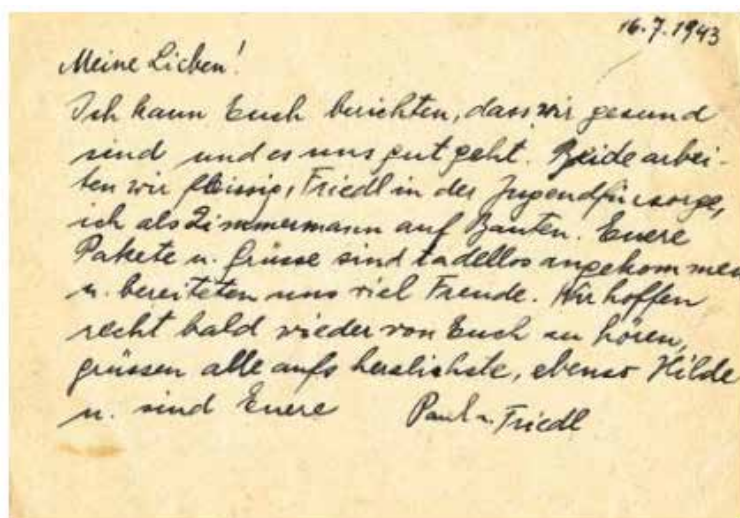 16.7.1943
Meine Lieben!
Ich kann Euch berichten, dass wir gesund
sind und es uns gut geht. Beide arbei-
ten wir fleissig, Friedl in der Jugendfürsorge,
ich als Zimmermann auf Bauten. Euere
Pakete u. Grüsse sind tadellos angekommen
u. bereiteten uns viel Freude. Wir hoffen
recht bald wieder von Euch zu hören,
grüssen alle aufs herzlichste, ebenso Hilde
u. sind Euere Paul u. Friedl